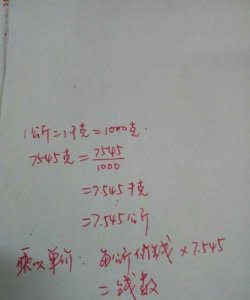 1公斤=1千克=1000克.
7545克=7545/1000
=7.545千克
=7.545公斤
乘以单价：每公斤价钱×7.545
=钱数